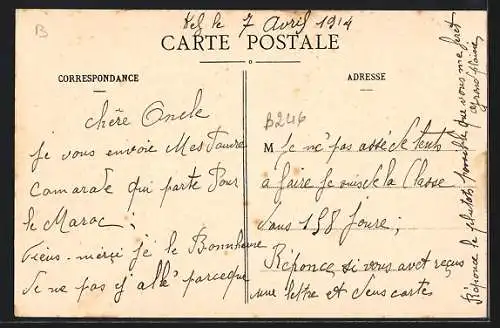 le 7 Avril 1914
B
CARTE POSTALE
CORRESPONDANCE
ADRESSE
B246
chère Oncle
je vous envoie Mes
Camarade qui parte Pour
le Maroc;
je le Bonnheure
Je ne pas y allé parceque
M Je ne pas assé de tents
à faire Je suis de la Classe
dans 158 Joure;
Réponce, si vous avet reçus
une lettre et deus cartes
Réponce le plutôt possible que vous me feret
grans plaine